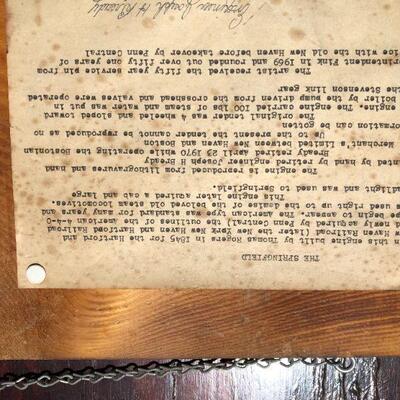 THE SPRINGFIELD
n this engine built by Thomas Rogers in 1845 for the Hartford and
w Haven Railroad (later the New York New Haven and Hartford Railroad
d newly acquired by Penn Central) the outlines of the American 4-4-0
pe begin to appear. The American type was standard for many years and
s used right up to the demise of the beloved old steam locomotives.
This engine later aquired a cab and large
adlight and was used to Springfield.
The engine is reproduced from lithographs and hand
inted by hand by retired engineer Joseph H Bready
Bready retired April 29 1970 while operating the Bostonian
Merchant's Limited between New Haven and Boston
Up to the present the tender cannot be reproduced as no
formation can be gotten
The original tender was 4 wheeled and sloped toward
engine. The engine carried 100 lbs of steam and water was put in
boiler by the pump driven from the crosshead and valves were operated
the Stevenson link gear
The artist received the fifty year service pin from
sident Pink in 1969 and rounded out over fifty years of
ice with the old New Haven before takeover by Penn Central
Engineer Joseph H Bready